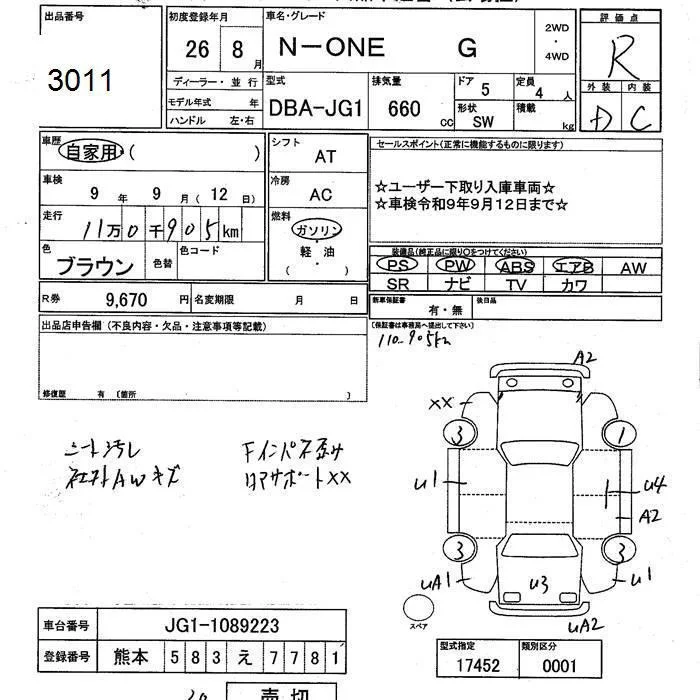 出品番号
3011
初度登録年月
26 8月
ディーラー・並行
モデル年式 年
ハンドル 左・右
車名・グレード
N-ONE G
2WD・4WD
型式
DBA-JG1
排気量
660 cc
ドア 5
形状 SW
定員 4人
積載 kg
評価点
R
外装 内装
D C
車歴
自家用・( )
車検
9年 9月(12日)
走行
11万0千905km
色
ブラウン
色替
色コード
シフト
AT
冷房
AC
燃料
ガソリン
軽・油
( ・ )
セールスポイント(正常に機能するものに限ります)
☆ユーザー下取り入庫車両☆
☆車検令和9年9月12日まで☆
装備品(純正品に限り○をつけてください)
PS PW ABS エアB AW
SR ナビ TV カワ
R券 9,670円
名変期限 月 日
新車保証書
有・無
後日品
(保証書は事務局へ提出して下さい)
出品店申告欄(不良内容・欠品・注意事項等記載)
修復歴 有 〔箇所 〕
110-905km
シート汚レ
社外AWキズ
Fインパネ歪み
リアサポートXX
A2
XX
3
1
U1
U4
A2
3
3
UA1
U3
U1
UA2
スペア
車台番号
JG1-1089223
登録番号
熊本 583 え 7781
型式指定
17452
類別区分
0001
売切